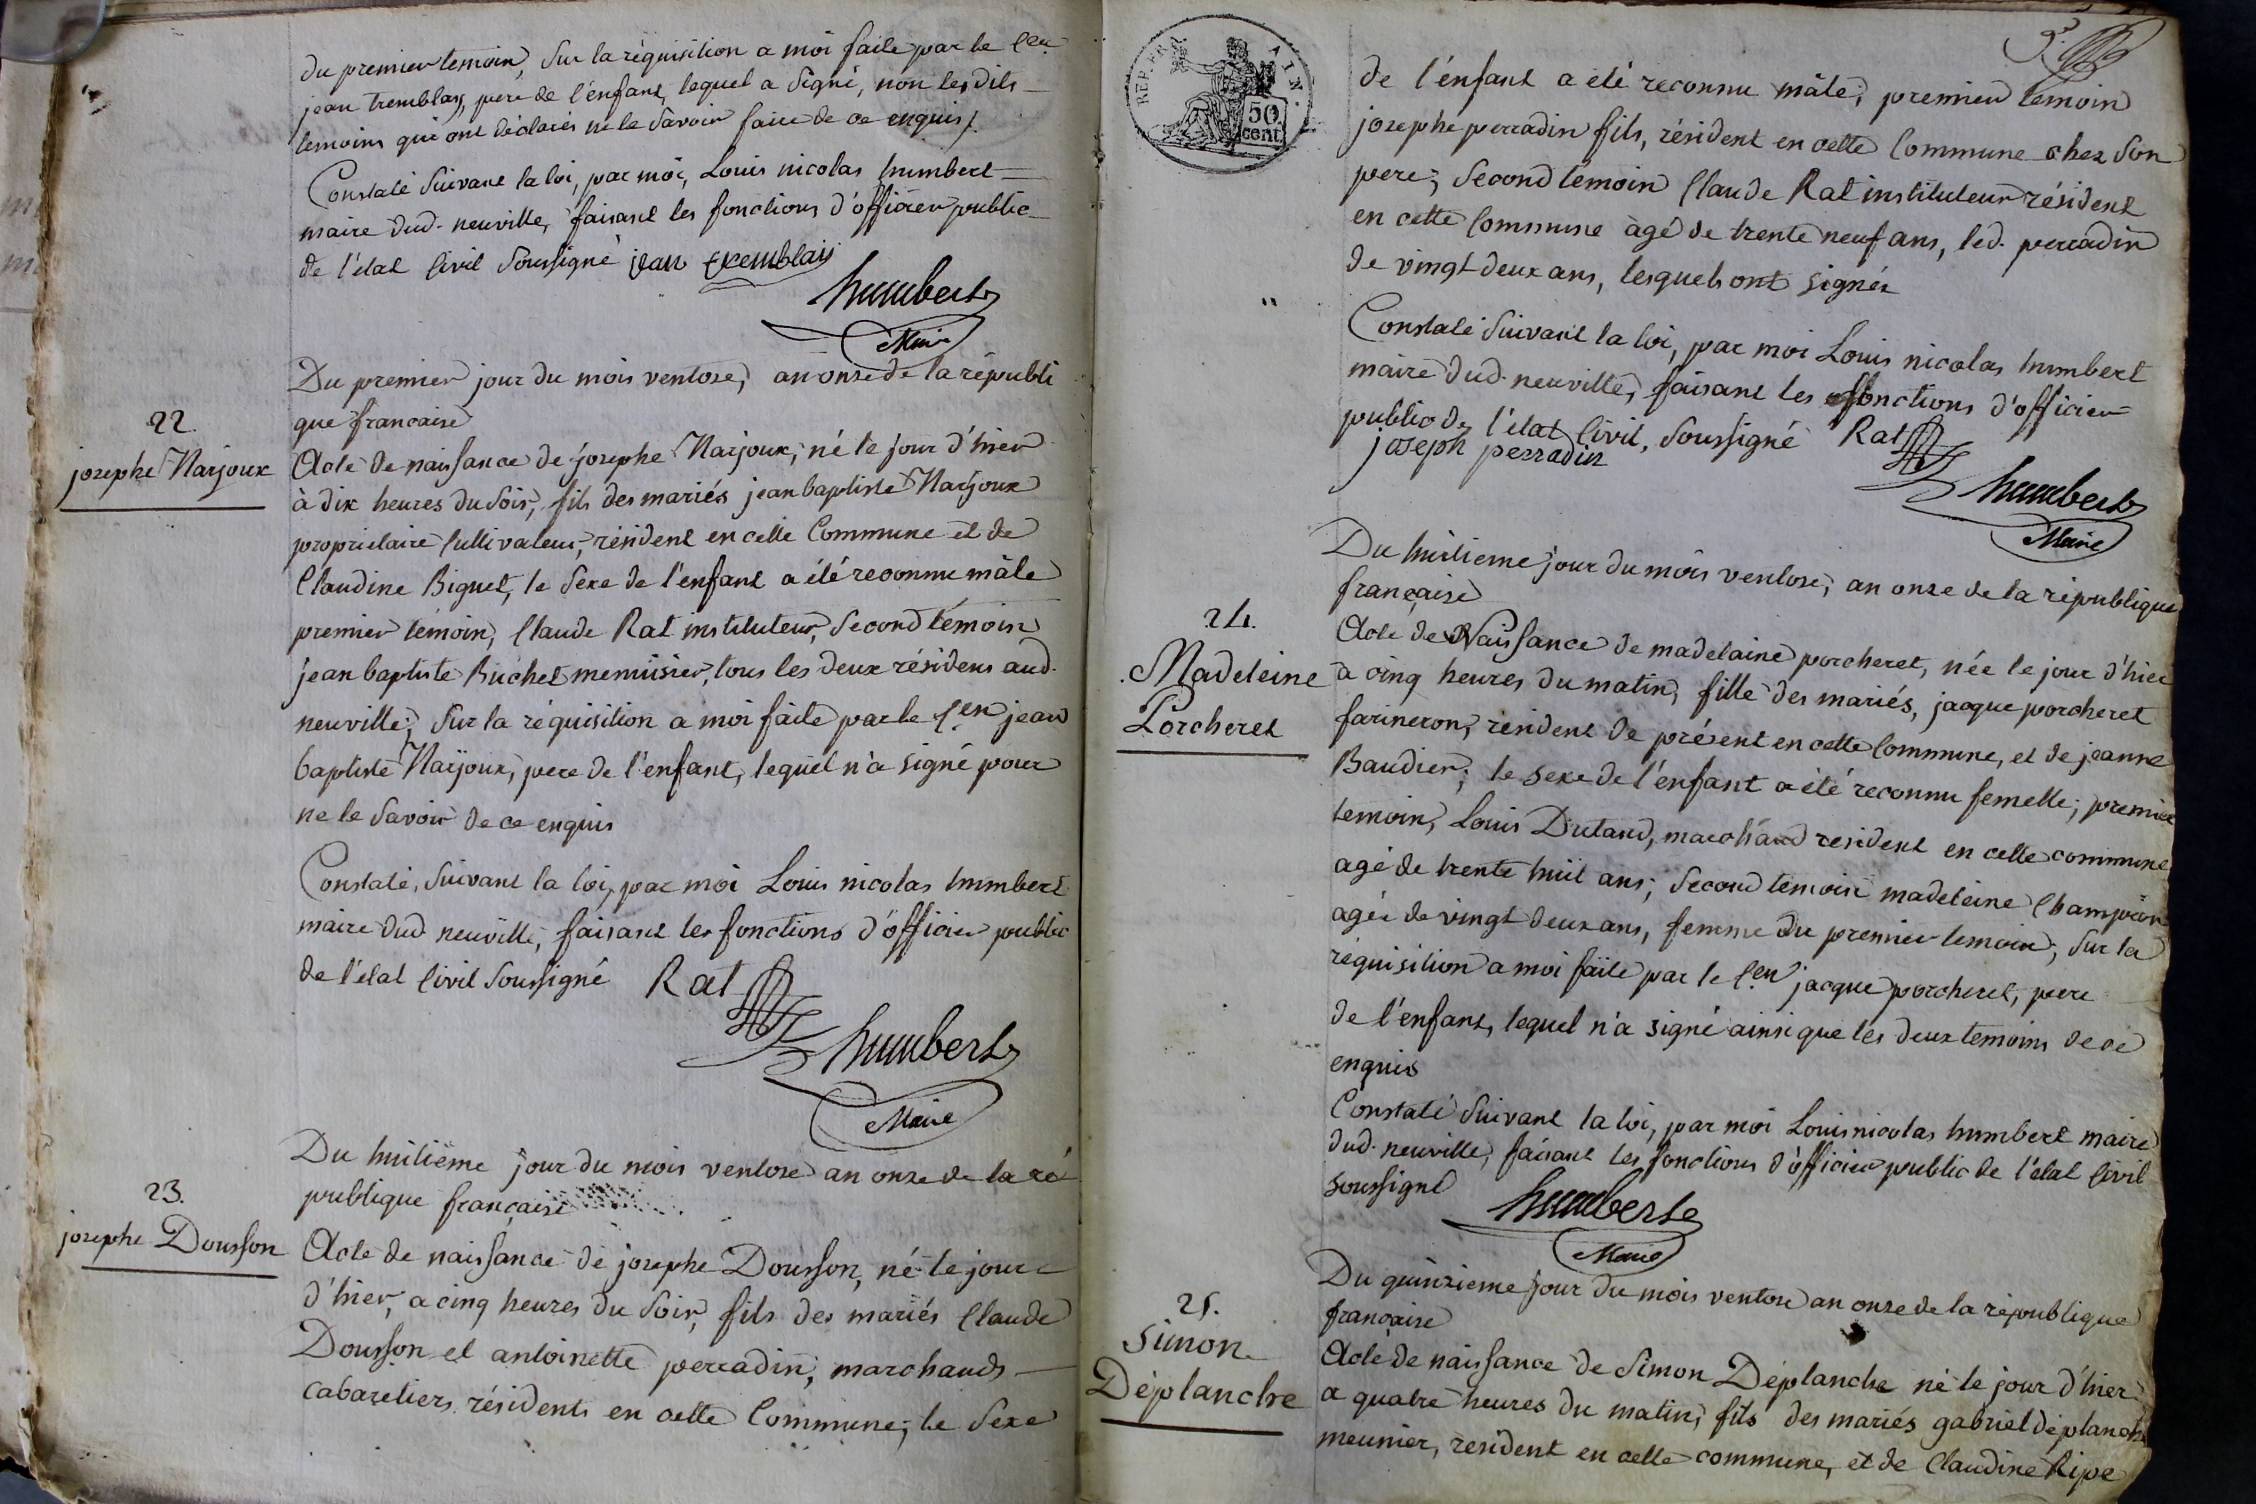 du premier temoin, Sur la réquisition a moi faite par le C.en
jean tremblay, pere de l'énfant, lequel a Signé, non les dits
temoins qui ont déclarés ne le Savoir faire de ce enquis,/.
Constaté Suivant la loi, par moi, Louis nicolas humbert
maire dud. neuville, faisant les fonctions d'öfficier public
de l'état Civil Soussigné jean tremblay
humbert
Maire
Du premier jour du mois ventose, an onze de la républi
que francaise
22.
josephe Narjoux
Acte de naissance de josephe Narjoux, né le jour d'hier
à dix heures du Soir, fils des mariés jean baptiste Narjoux
proprietaire Cultivateur, résident en cette Commune et de
Claudine Biguet, le Sexe de l'enfant a été reconnu mâle
premier témoin, Claude Rat instituteur, Second témoin
jean baptiste Buchet menuisier, tous les deux résidens aud.
neuville; Sur la réquisition a moi faite par le C.en jean
baptiste Narjoux, pere de l'enfant, lequel n'a signé pour
ne le Savoir de ce enquis
Constaté, Suivant la loi, par moi Louis nicolas humbert
maire dud neuville, faisant les fonctions d'öfficier public
de l'état Civil Soussigné Rat
humbert
Maire
Du huitiême jour du mois ventose an onze de la ré
publique française
23.
josephe Dousson
Acte de naissance de josephe Dousson, né le jour
d'hier, a cinq heures du Soir, fils des mariés Claude
Dousson et antoinette perradin, marchands
cabaretiers résidents en cette Commune; le Sexe
REP. FRA. AIN.
50
cent.
3.
de l'énfant a été reconnu mâle; premier temoin
josephe perradin fils, résident en cette Commune chez Son
pere; Second témoin Claude Rat instituteur résident
en cette Commune àgé de trente neuf ans, led. perradin
de vingt deux ans, lesquels ont signés
Constaté Suivant la loi, par moi Louis nicolas humbert
maire dud. neuville, faisant les fonctions d'officier
public de l'état Civil, Soussigné Rat
joseph perradin
humbert
Maire
Du huitieme jour du mois ventose, an onze de la république
française
24.
Madeleine
Porcheret
Acte de Naissance de madelaine porcheret, née le jour d'hier
a cinq heures du matin, fille des mariés, jacque porcheret
farineron, résident de présent en cette Commune, et de jeanne
Baudier; le sexe de l'énfant a été reconnu femelle; premier
temoin, Louis Dutand, marchand resident en cette commune
agé de trente huit ans; Second temoin madeleine Champion
agée de vingt deux ans, femme du premier temoin; Sur la
réquisition a moi faite par le C.en jacque porcheret, pere
de l'énfant, lequel n'a signé ainsi que les deux temoins de ce
enquis
Constaté Suivant la loi, par moi Louis nicolas humbert maire
dud. neuville, faisant les fonctions d'öfficier public de l'état Civil
soussigné
humbert
Maire
Du quinzieme jour du mois ventose an onze de la république
francaise
25.
Simon
Déplanche
Acte de naissance de Simon Déplanche né le jour d'hier
a quatre heures du matin, fils des mariés gabriel déplanche
meunier, resident en cette commune, et de Claudine Ripe